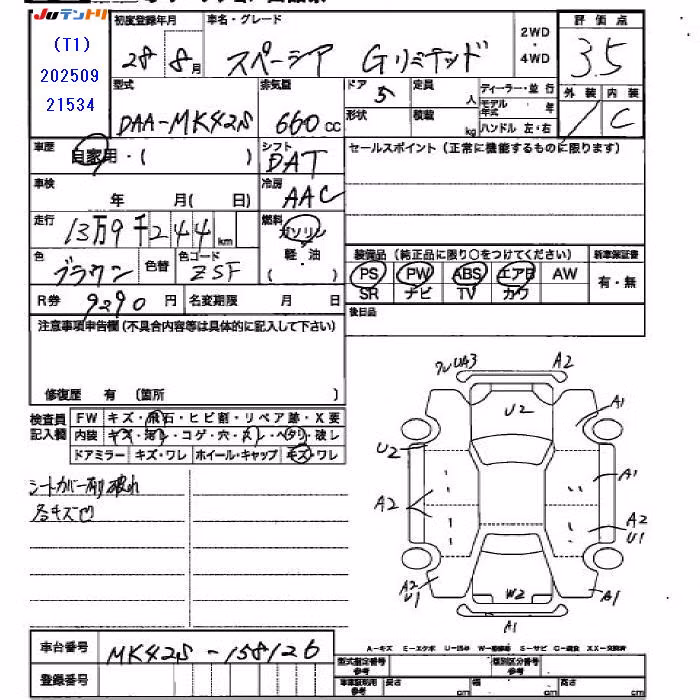 JUテントリ
(T1)
202509
21534
初度登録年月
28 8月
車名・グレード
スペーシア Gリミテッド
2WD
・
4WD
評価点
3.5
外装 内装
/ C
型式
DAA-MK42S
排気量
660cc
ドア
5
定員
人
形状
積載
kg
ディーラー・並行
モデル年式 年
ハンドル 左・右
車歴
自家用・( )
シフト
DAT
セールスポイント(正常に機能するものに限ります)
車検
年 月(日)
冷房
AAC
走行
13万9千244km
燃料
ガソリン
軽・油
( )
色
ブラウン
色替
色コード
ZSF
装備品(純正品に限り○をつけてください)
新車保証書
PS PW ABS エアB AW
SR ナビ TV カワ
有・無
R券 9290円
名変期限 月 日
後日品
注意事項申告欄(不具合内容等は具体的に記入して下さい)
修復歴 有 (箇所 )
検査員
記入欄
FW キズ・飛石・ヒビ割・リペア跡・X要
内装 キズ・汚レ・コゲ・穴・スレ・ヘタリ・破レ
ドアミラー キズ・ワレ ホイール・キャップ キズ・ワレ
シートカバー有り 破れ
各キズ凹
ワレ UA3
A2
U2
A1
U2
A1
A2
A2
U1
A2
U1
W2
A1
A1
A-キズ E-エクボ U-凹み W-補修跡 S-サビ C-腐食 XX-交換済
車台番号
MK42S-158126
登録番号
型式指定番号
参考
類別区分番号
参考
車庫証明用
参考
長さ
cm
幅
cm
高さ
cm